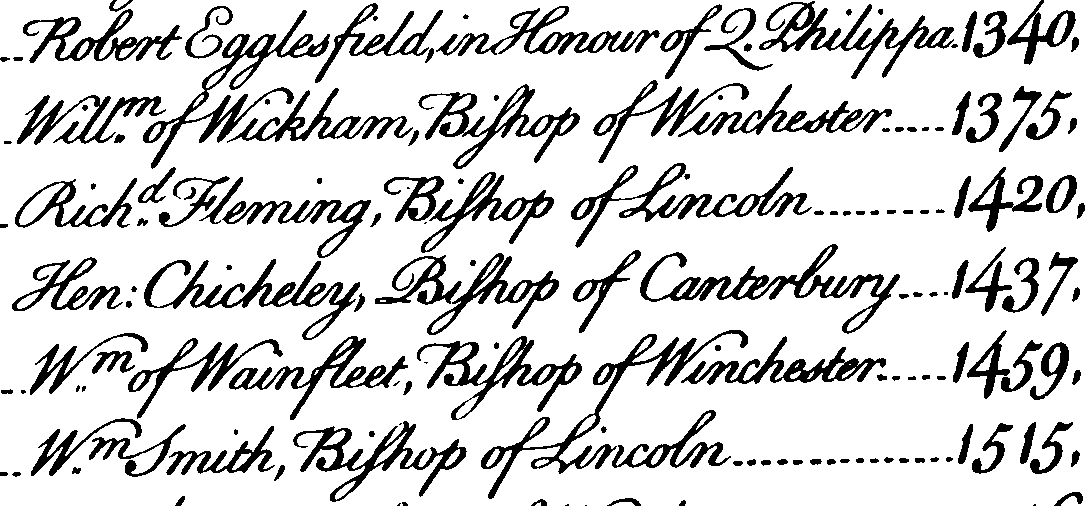 Robert Egglesfield, in Honour of Q. Philippa. 1340,
Will.m of Wickham, Biſhop of Winchester..... 1375,
Rich.d Fleming, Biſhop of Lincoln......... 1420,
Hen: Chicheley, Biſhop of Canterbury.... 1437,
W.m of Wainfleet, Biſhop of Winchester..... 1459,
W.m Smith, Biſhop of Lincoln............... 1515,